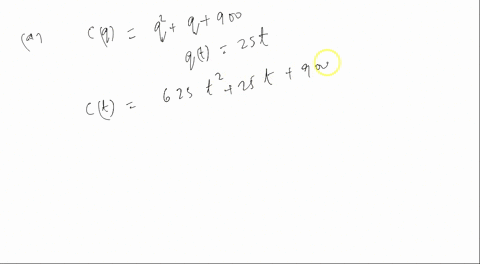 (a) C(q) = q² + q + 900
q(t) = 25t
C(t) = 625 t² + 25 t + 900